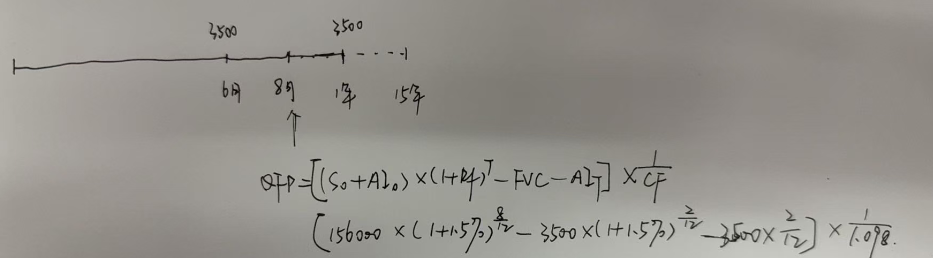 3500 3500
6月 8月 1年 15年
QFP=[(S₀+AI₀)×(1+Rf)^T-FVC-AI_T]×1/CF
[156000×(1+1.5%)^8/12-3500×(1+1.5%)^2/12-3500×2/12]×1/1.098.